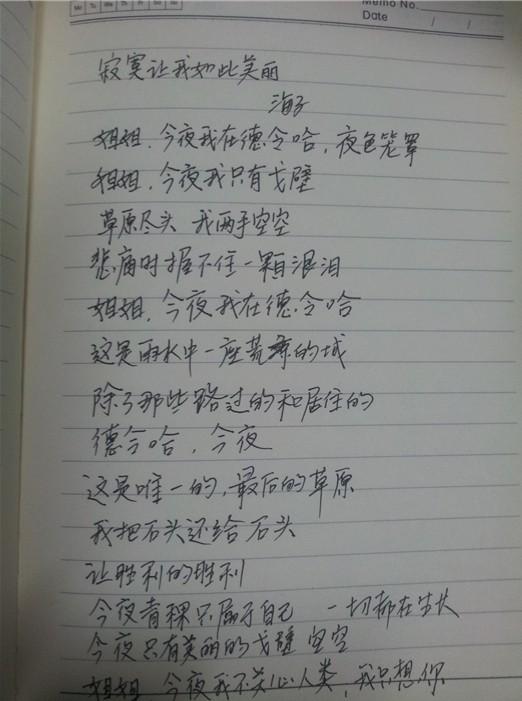 Mo Tu We Th Fr Sa Su
Memo No.
Date / /
寂寞让我如此美丽
海子
姐姐，今夜我在德令哈，夜色笼罩
姐姐，今夜我只有戈壁
草原尽头 我两手空空
悲痛时握不住一颗泪泪
姐姐，今夜我在德令哈
这是雨水中一座荒凉的城
除了那些路过的和居住的
德令哈，今夜
这是唯一的，最后的草原
我把石头还给石头
让胜利的胜利
今夜青稞只属于自己 一切都在生长
今夜只有美丽的戈壁 空空
姐姐，今夜我不关心人类，我只想你